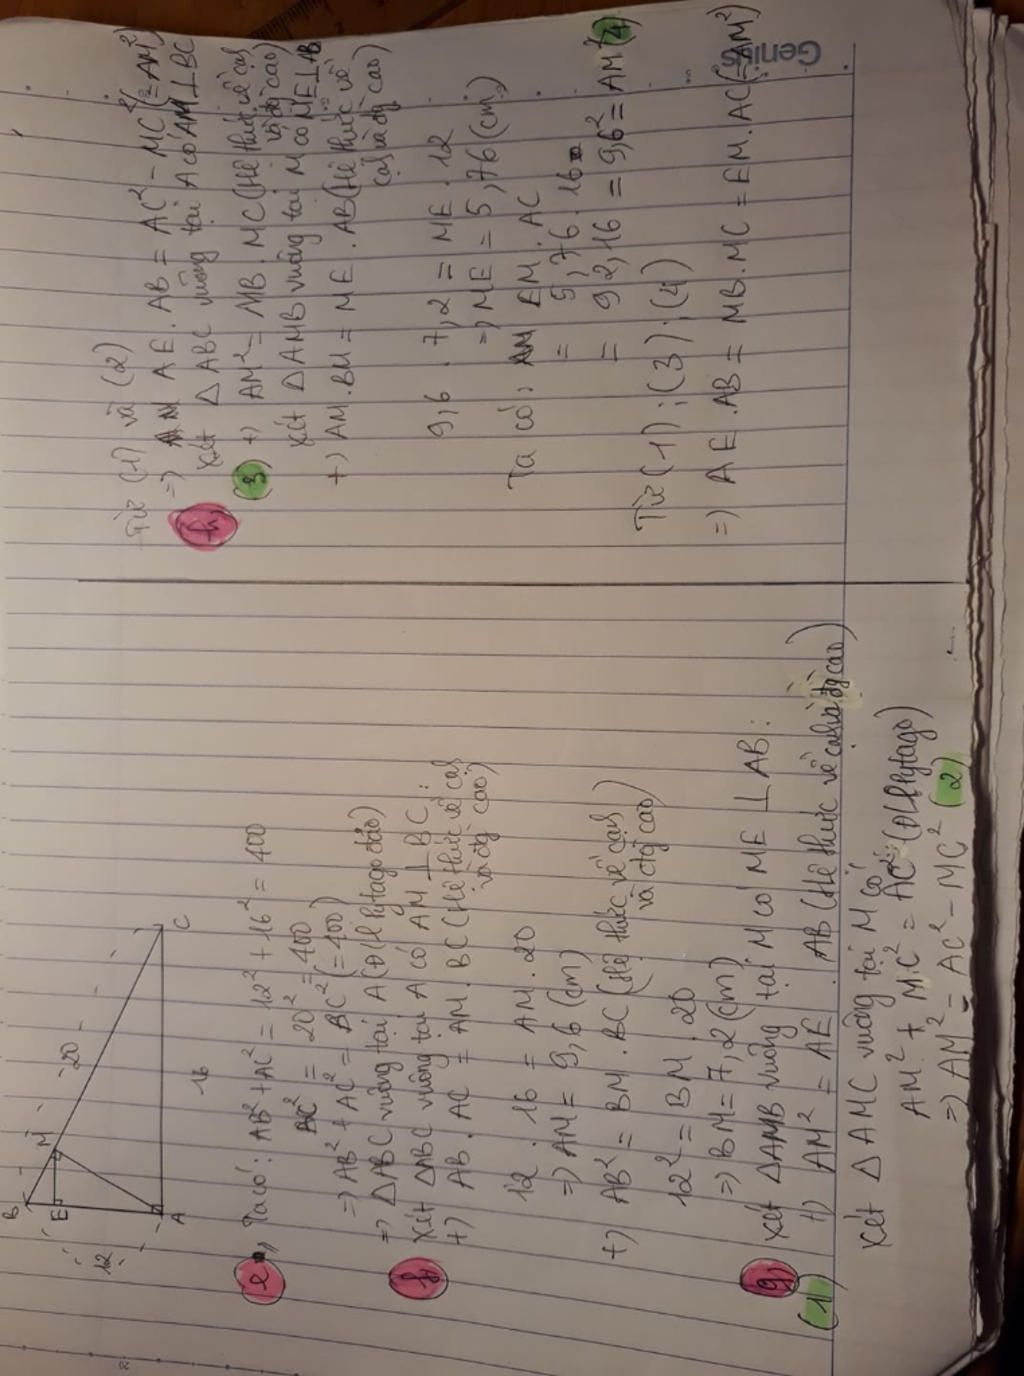 B
E
M
A
C
12
20
16
e, Ta có: AB² + AC² = 12² + 16² = 400
BC² = 20² = 400
=> AB² + AC² = BC² (= 400)
=> △ABC vuông tại A (Đ/l Pytago đảo)
f, Xét △ABC vuông tại A có AM ⊥ BC:
+) AB . AC = AM . BC (Hệ thức về cạh
và đg cao)
12 . 16 = AM . 20
=> AM = 9,6 (cm)
+) AB² = BM . BC (Hệ thức về cạh
và đg cao)
12² = BM . 20
=> BM = 7,2 (cm)
g, Xét △AMB vuông tại M có ME ⊥ AB:
(1) +) AM² = AE . AB (Hệ thức về cạh và đg cao)
Xét △AMC vuông tại M có
AM² + MC² = AC² (Đ/l Pytago)
=> AM² = AC² - MC² (2)
Từ (1) và (2)
=> AE . AB = AC² - MC² (= AM²)
h, Xét △ABC vuông tại A có AM ⊥ BC
(3) +) AM² = MB . MC (Hệ thức về cạh
và đg cao)
Xét △AMB vuông tại M có ME ⊥ AB
+) AM . BM = ME . AB (Hệ thức về
cạh và đg cao)
9,6 . 7,2 = ME . 12
=> ME = 5,76 (cm)
Ta có: EM . AC
= 5,76 . 16
= 92,16 = 9,6² = AM² (4)
Từ (1) ; (3) ; (4)
=> AE . AB = MB . MC = EM . AC (= AM²)
Genius
20